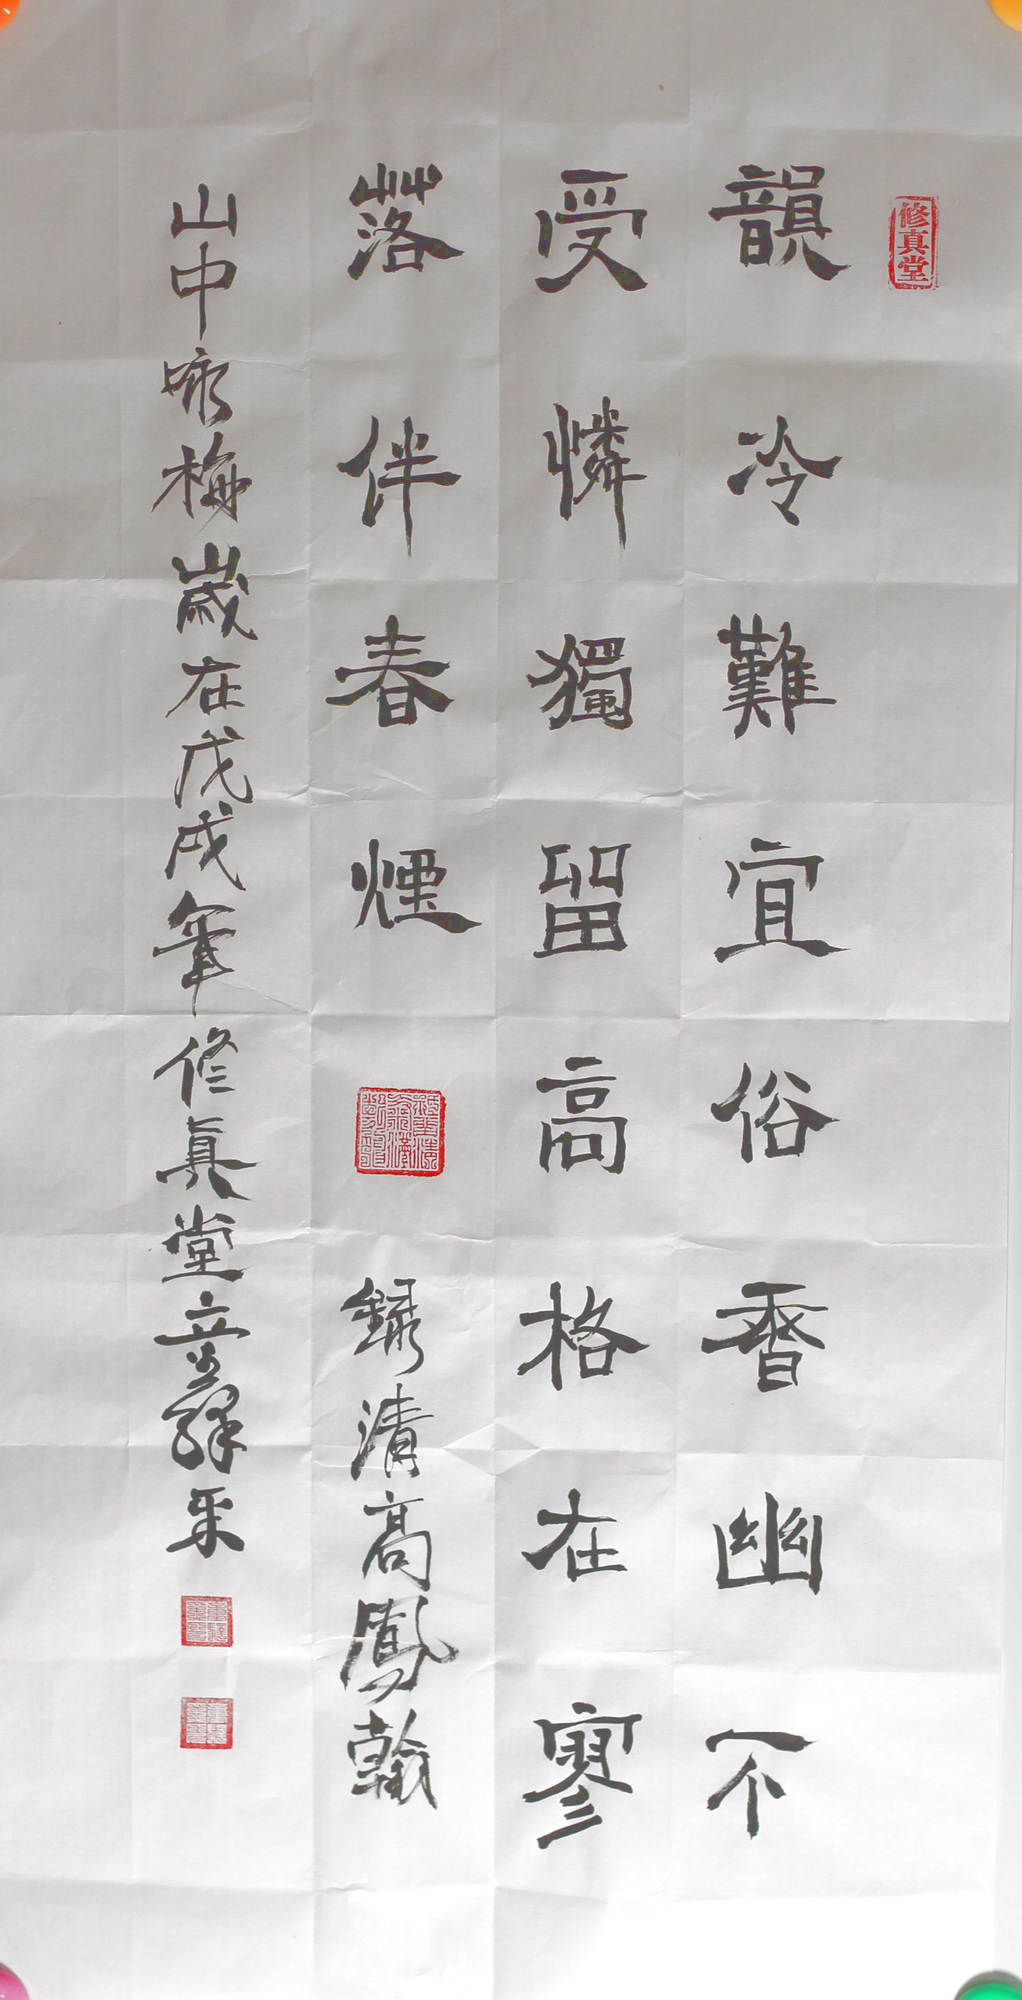 修真堂
韻冷難宜俗香幽不
受憐獨留高格在寥
落伴春煙
錄清高鳳翰
山中咏梅歲在戊戌年修真堂主釋采